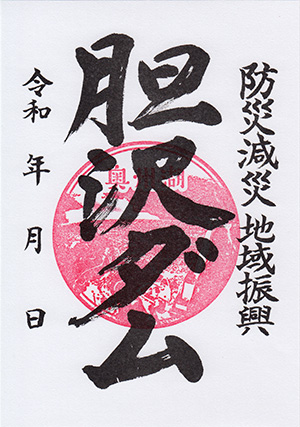 防災減災 地域振興
胆沢ダム
令和 年 月 日